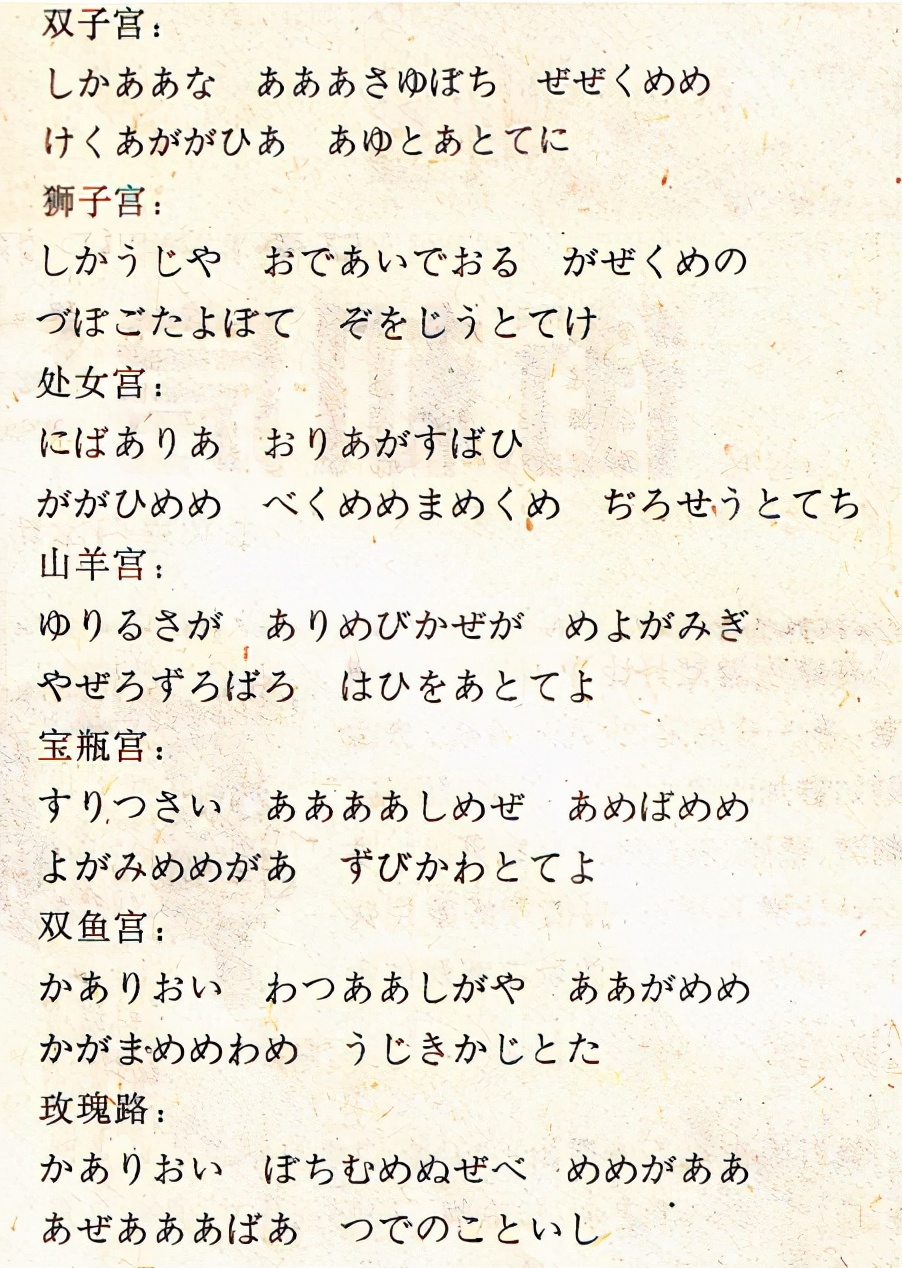 双子宫：
しかああな　あああさゆぼち　ぜぜくめめ
けくあががひあ　あゆとあとてに
狮子宫：
しかうじや　おであいでおる　がぜくめの
づぽごたよぽて　ぞをじうとてけ
处女宫：
にばありあ　おりあがすばひ
ががひめめ　べくめめまめくめ　ぢろせうとてち
山羊宫：
ゆりるさが　ありめびかぜが　めよがみぎ
やぜろずろばろ　はひをあとてよ
宝瓶宫：
すりつさい　ああああしめぜ　あめばめめ
よがみめめがあ　ずびかわとてよ
双鱼宫：
かありおい　わつああしがや　ああがめめ
かがまめめわめ　うじきかじとた
玫瑰路：
かありおい　ぼちむめぬぜべ　めめがああ
あぜあああばあ　つでのこといし